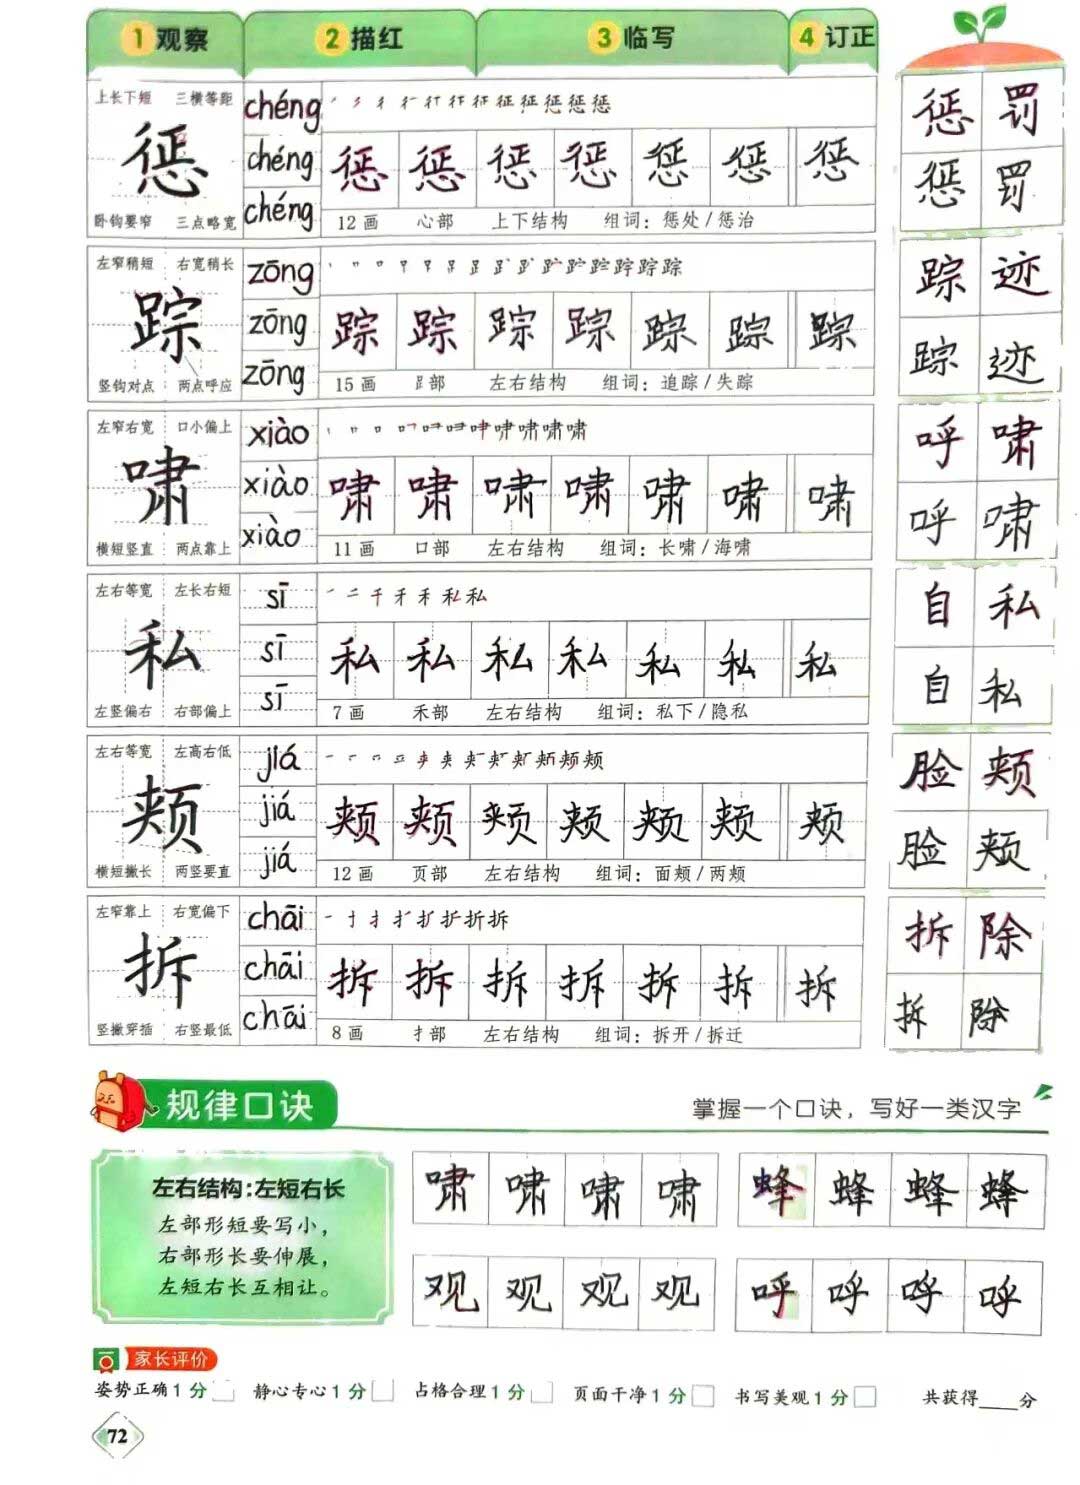 1 观察 2 描红 3 临写 4 订正
上长下短 三横等距
惩
卧钩要窄 三点略宽
chéng
chéng
chéng
惩 惩 惩 惩 惩 惩 惩
12画 心部 上下结构 组词：惩处/惩治
惩 罚
惩 罚
左窄稍短 右宽稍长
踪
竖钩对点 两点呼应
zōng
zōng
zōng
踪 踪 踪 踪 踪 踪 踪
15画 𧾷部 左右结构 组词：追踪/失踪
踪 迹
踪 迹
左窄右宽 口小偏上
啸
横短竖直 两点靠上
xiào
xiào
xiào
啸 啸 啸 啸 啸 啸 啸
11画 口部 左右结构 组词：长啸/海啸
呼 啸
呼 啸
左右等宽 左长右短
私
左竖偏右 右部偏上
sī
sī
sī
私 私 私 私 私 私 私
7画 禾部 左右结构 组词：私下/隐私
自 私
自 私
左右等宽 左高右低
颊
横短撇长 两竖要直
jiá
jiá
jiá
颊 颊 颊 颊 颊 颊 颊
12画 页部 左右结构 组词：面颊/两颊
脸 颊
脸 颊
左窄靠上 右宽偏下
拆
竖撇穿插 右竖最低
chāi
chāi
chāi
拆 拆 拆 拆 拆 拆 拆
8画 扌部 左右结构 组词：拆开/拆迁
拆 除
拆 除
规律口诀
掌握一个口诀，写好一类汉字
左右结构：左短右长
左部形短要写小，
右部形长要伸展，
左短右长互相让。
啸 啸 啸 啸 蜂 蜂 蜂 蜂
观 观 观 观 呼 呼 呼 呼
家长评价
姿势正确1分 静心专心1分 占格合理1分 页面干净1分 书写美观1分 共获得____分
72